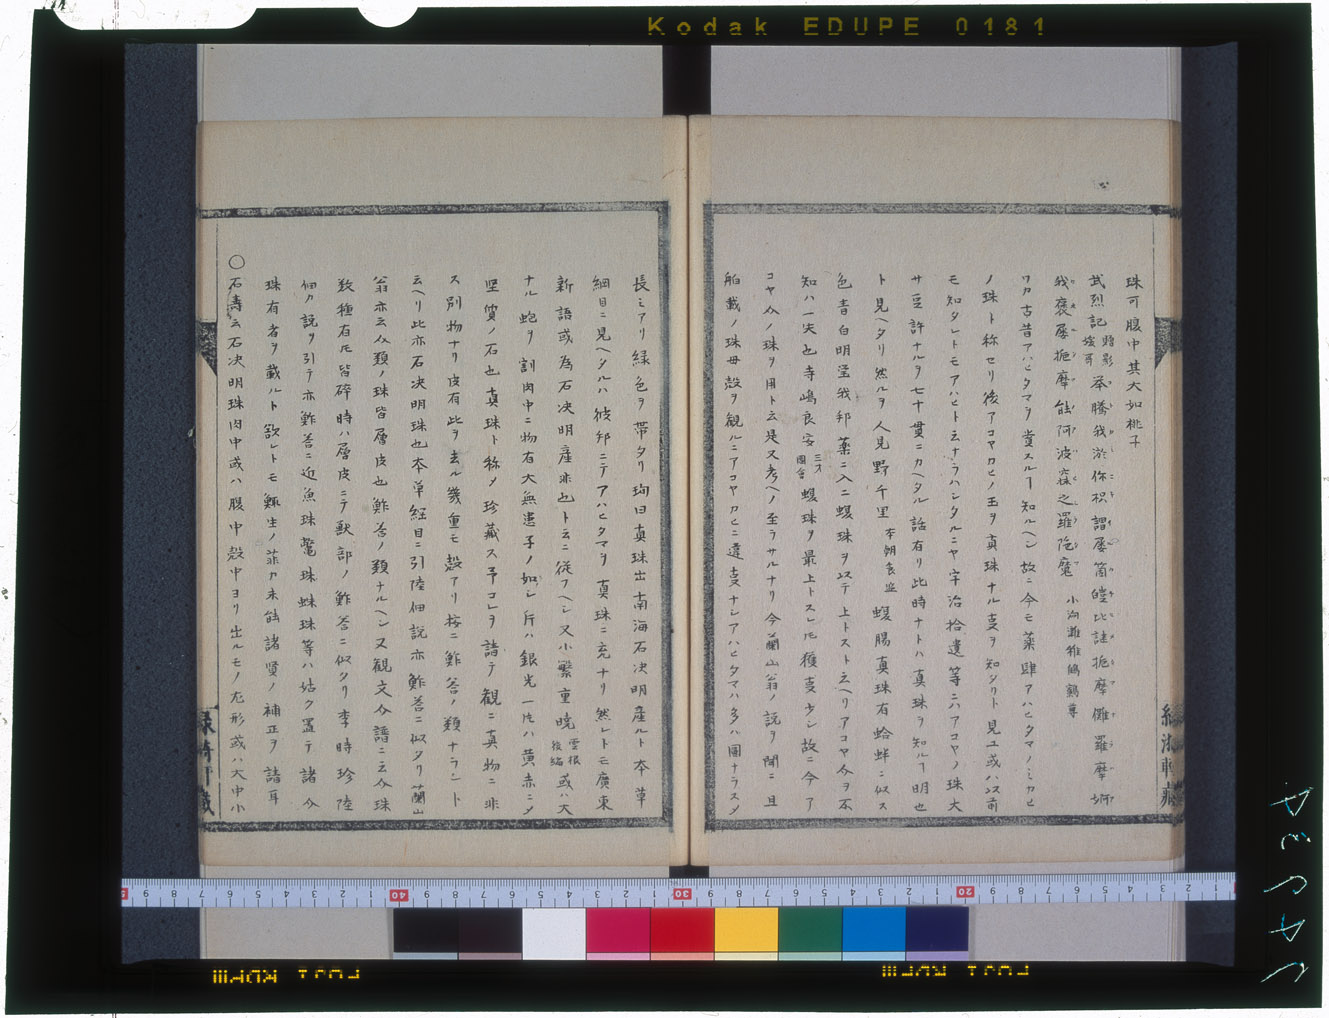 Kodak EDUPE 0181
珠可腹中其大如桃子
武烈記 影媛哥 举騰我瀰你枳謂屡箇皚比謎扼摩儺羅摩婀
我褒屡扼摩能阿波寐之羅陁魔 小沟雖雅鶴鶉尊
ワカ古昔アハヒタマヲ賞スルヿ知ルヘシ故ニ今モ薬肆アハヒタマノミカヒ
ノ珠ト称セリ後アコヤカヒノ玉ヲ真珠ナル叓ヲ知タリト見ユ或ハ以前
モ知タレトモアハヒト云ナラハシタルニヤ宇治拾遺等ニハアコヤノ珠大
サ豆許ナルヲ七十貫ニカヘタル話有リ此時ナトハ真珠ヲ知ルヿ明也
ト見ヘタリ然ルヲ人見野千里 本朝食鑑 蝮腸真珠有蛤蚌ニ似ス
色青白明瑩我邦薬ニ入ニ蝮珠ヲ以テ上トスト云ヘリアコヤ分ヲ不
知ハ一失也寺嶋良安 三才圖會 蝮珠ヲ最上トスレ圧獲叓少シ故ニ今ア
コヤ分ノ珠ヲ用ト云是又考ヘノ至ラサルナリ今蘭山翁ノ説ヲ聞ニ且
舶載ノ珠母殻ヲ観ルニアコヤカヒニ違叓ナシアハヒタマハ多ハ圓ナラスメ
長ミアリ緑色ヲ帯タリ珣曰真珠出南海石决明産ルト本草
綱目ニ見ヘタルハ彼邦ニテアハヒタマヲ真珠ニ充ナリ然レトモ廣東
新語或為石决明産非也トニ従フヘシ又小繁重暁 雲根後編 或ハ大
ナル蚫ヲ割肉中ニ物有大無患子ノ如シ斤ハ銀光一片ハ黄赤ニメ
堅實ノ石也真珠ト称メ珍蔵ス予コレヲ請テ観ニ真物ニ非
ス別物ナリ皮有此ヲ去ル幾重モ殻アリ桉ニ鮓荅ノ類ナラント
云ヘリ此亦石决明珠也本草綱目ニ引陸佃説亦鮓荅ニ似タリ蘭山
翁亦云分類ノ珠皆層皮也鮓荅ノ類ナルヘシ又観文介譜ニ云分珠
数種有圧皆碎時ハ層皮ニテ獣部ノ鮓荅ニ似タリ李時珍陸
佃カ説ヲ引テ亦鮓荅ニ近魚珠鼈珠蛛珠等ハ姑ク置テ諸分
珠有者ヲ載ルト欲レトモ鯫生ノ菲カ未能諸賢ノ補正ヲ請耳
○石壽云石决明珠肉中或ハ腹中殻中ヨリ出ルモノ尨形或ハ大中小